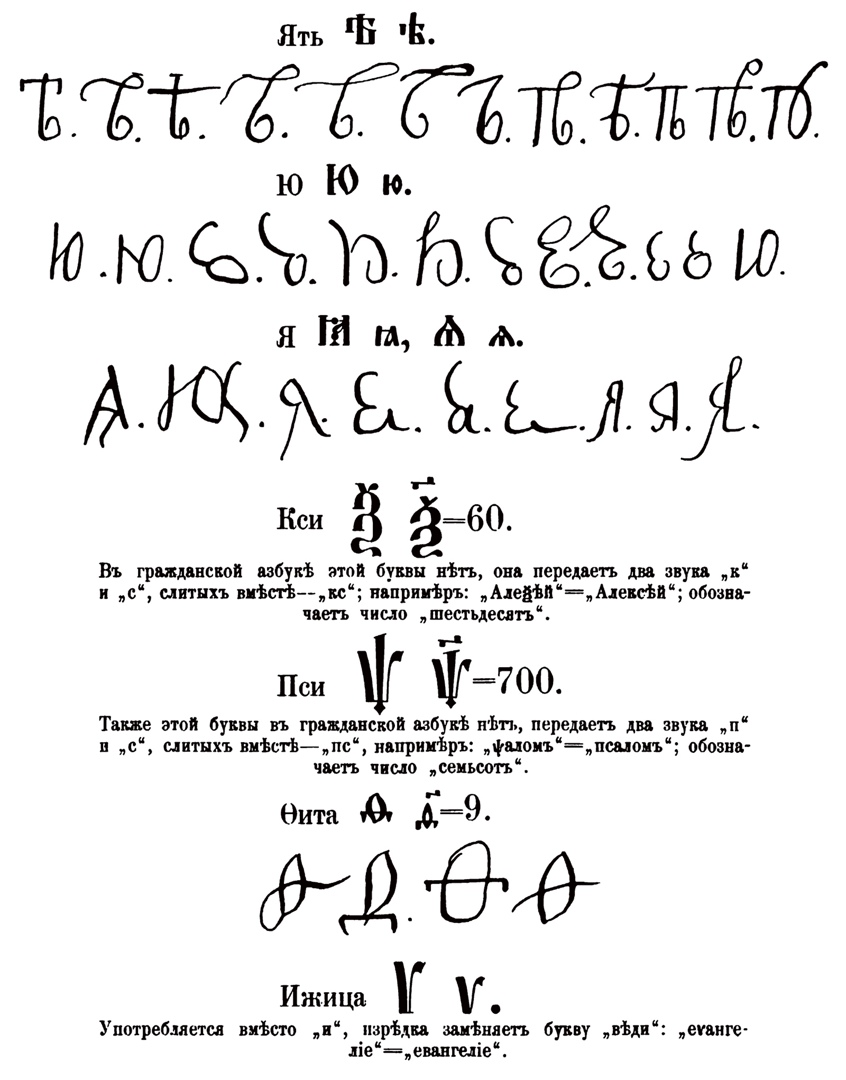 Ять Ѣ ѣ.
Ѣ. Ѣ. Ѣ. Ѣ. Ѣ. Ѣ. Ѣ. Ѣ. Ѣ. Ѣ. Ѣ. Ѣ.
ю Ю ю.
Ю. Ю. Ю. Ю. Ю. Ю. Ю. Ю. Ю. Ю. Ю. Ю.
я Ꙗ ꙗ, Ѧ ѧ.
Я. Я. Я. Я. Я. Я. Я. Я. Я.
Кси Ѯ ѯ҃=60.
Въ гражданской азбукѣ этой буквы нѣтъ, она передаетъ два звука „к“
и „с“, слитыхъ вмѣстѣ—„кс“; напримѣръ: „Алеѯѣй“=„Алексѣй“; обозна-
чаетъ число „шестьдесятъ“.
Пси Ѱ ѱ҃=700.
Также этой буквы въ гражданской азбукѣ нѣтъ, передаетъ два звука „п“
и „с“, слитыхъ вмѣстѣ—„пс“, напримѣръ: „ѱаломъ“=„псаломъ“; обозна-
чаетъ число „семьсотъ“.
Ѳита Ѳ ѳ҃=9.
Ѳ Ѳ. Ѳ Ѳ
Ижица Ѵ ѵ.
Употребляется вмѣсто „и“, изрѣдка замѣняетъ букву „вѣди“: „еѵанге-
ліе“=„евангеліе“.